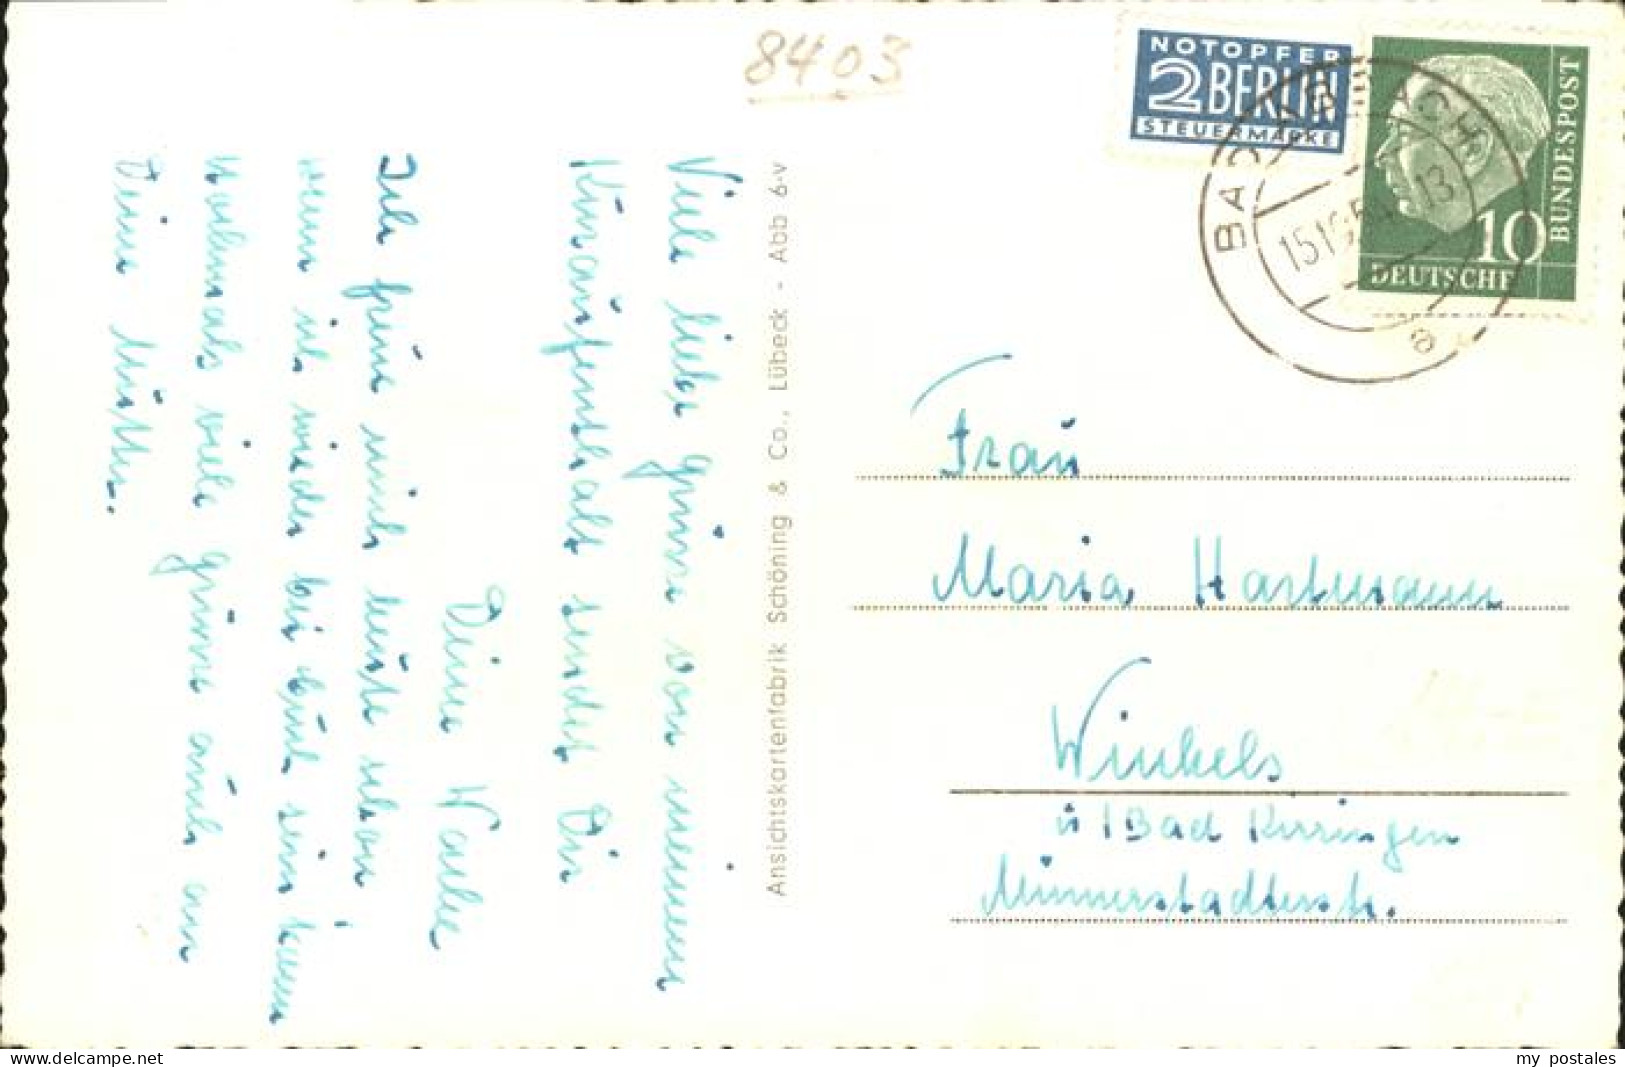 8403
NOTOPFER
2 BERLIN
STEUERMARKE
DEUTSCHE
BUNDESPOST
10
BAD
13
a
Viele liebe grüsse von meinem
Kuraufenthalt sendet Dir
Deine
Ich freue mich heute schon
wenn ich wieder bei Euch sein kann
Nochmals viele grüsse auch an
Deine Mutter.
Ansichtskartenfabrik Schöning & Co., Lübeck - Abb 6-v
Frau
Maria Hartmann
Winkels
ü/Bad Kissingen
Münnerstadterstr.
delcampe.net
my_postales